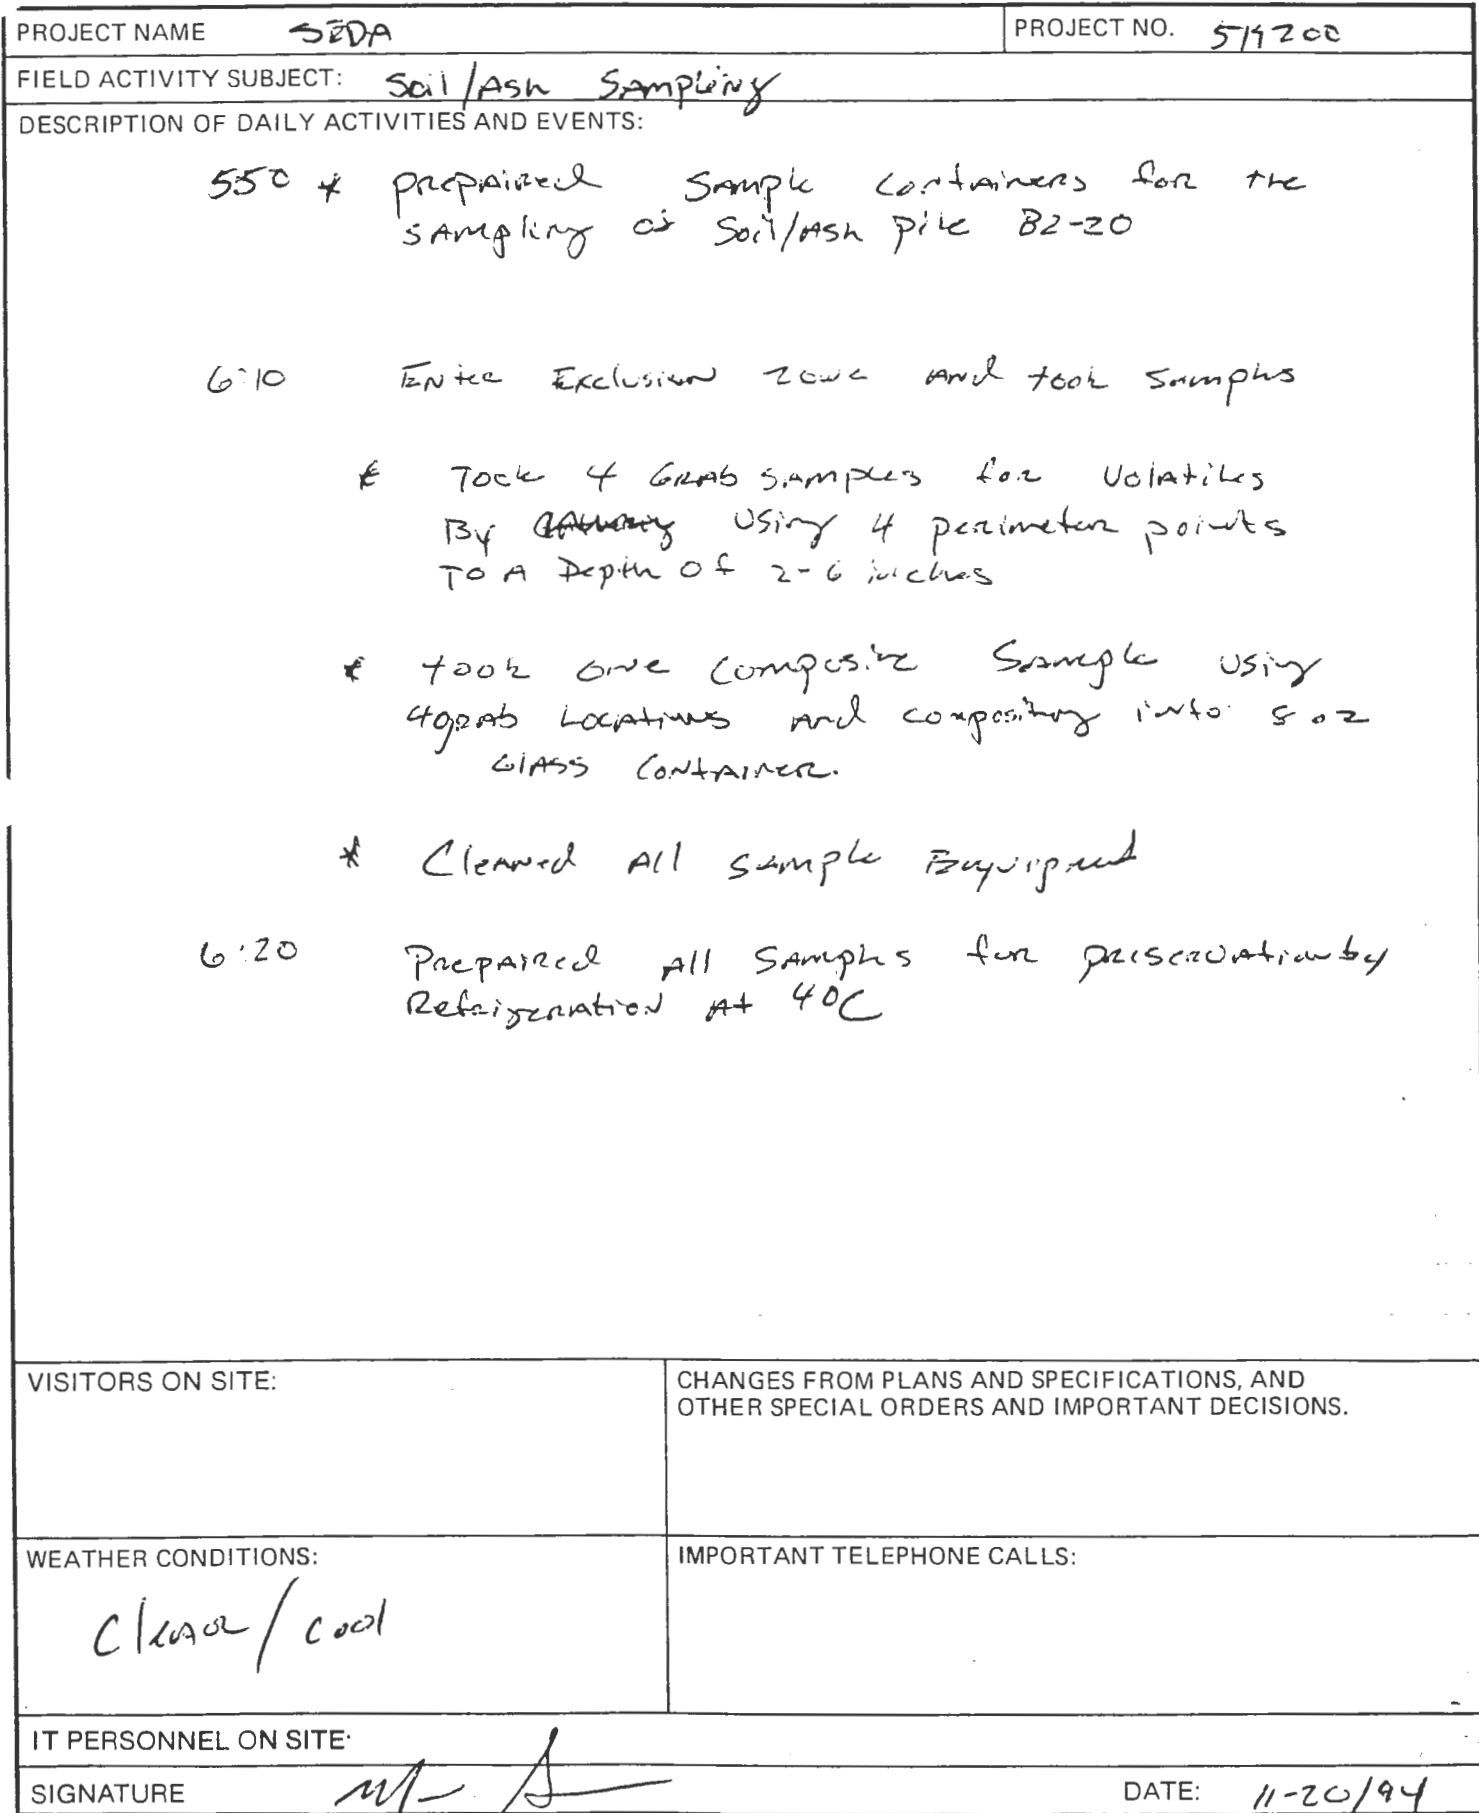 PROJECT NAME SEDA PROJECT NO. 519200
FIELD ACTIVITY SUBJECT: Soil/Ash Sampling
DESCRIPTION OF DAILY ACTIVITIES AND EVENTS:
550 * prepaired sample containers for the
sampling of Soil/Ash pile B2-20
6:10 Enter Exclusion zone and took samples
* Took 4 Grab samples for Volatiles
By using 4 perimeter points
To A Depth of 2-6 inches
* took one composite Sample using
4 grab Locations and compositing into 8 oz
Glass Container.
* Cleaned All sample Equipment
6:20 Prepaired All Samples for preservation by
Refrigeration At 40C
VISITORS ON SITE:
CHANGES FROM PLANS AND SPECIFICATIONS, AND
OTHER SPECIAL ORDERS AND IMPORTANT DECISIONS.
WEATHER CONDITIONS:
Clear/cool
IMPORTANT TELEPHONE CALLS:
IT PERSONNEL ON SITE:
SIGNATURE DATE: 11-20/94